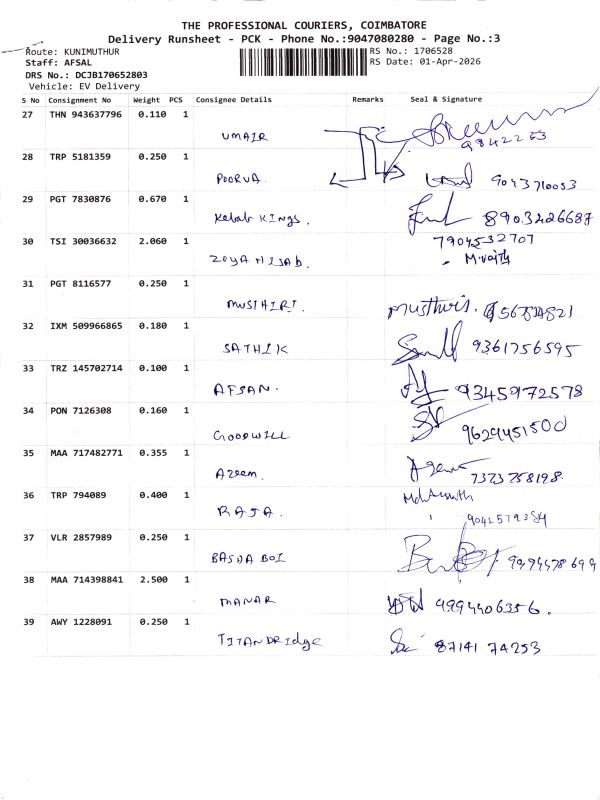 THE PROFESSIONAL COURIERS, COIMBATORE
Delivery Runsheet - PCK - Phone No.:9047080280 - Page No.:3
Route: KUNIMUTHUR RS No.: 1706528
Staff: AFSAL RS Date: 01-Apr-2026
DRS No.: DCJB170652803
Vehicle: EV Delivery
S No Consignment No Weight PCS Consignee Details Remarks Seal & Signature
27 THN 943637796 0.110 1
UMAIR
28 TRP 5181359 0.250 1
POORVA 9043710033
29 PGT 7830876 0.670 1
Kebab KINGS. 8903426687
30 TSI 30036632 2.060 1 7904532707
ZOYA HIJAB.
31 PGT 8116577 0.250 1
MUSTHIRI.
32 IXM 509966865 0.180 1
SATHIK 9361756595
33 TRZ 145702714 0.100 1
AFSAN. 9345972578
34 PON 7126308 0.160 1
GOODWILL 9629451500
35 MAA 717482771 0.355 1
Azeem. 7373758198.
36 TRP 794089 0.400 1
RAJA.
37 VLR 2857989 0.250 1
BASHA BOI
38 MAA 714398841 2.500 1
MANAR 9994406356.
39 AWY 1228091 0.250 1
TITANDRIdge 87141 74253